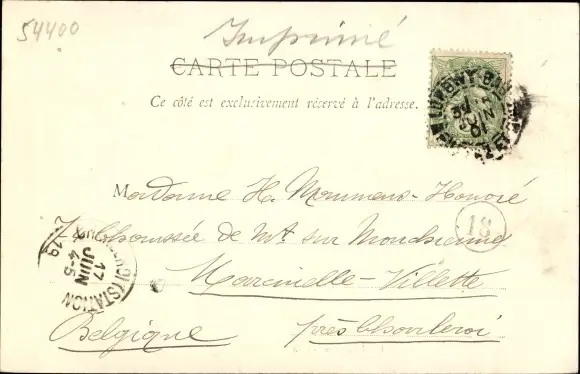 54400
Imprimé
CARTE POSTALE
Ce côté est exclusivement réservé à l'adresse.
JUIN
01
Madame H. Mommens-Honoré
Chaussée de Mt sur Marchienne
18
Marcinelle-Villette
Belgique près Charleroi
STATION
17
JUIN
4-5